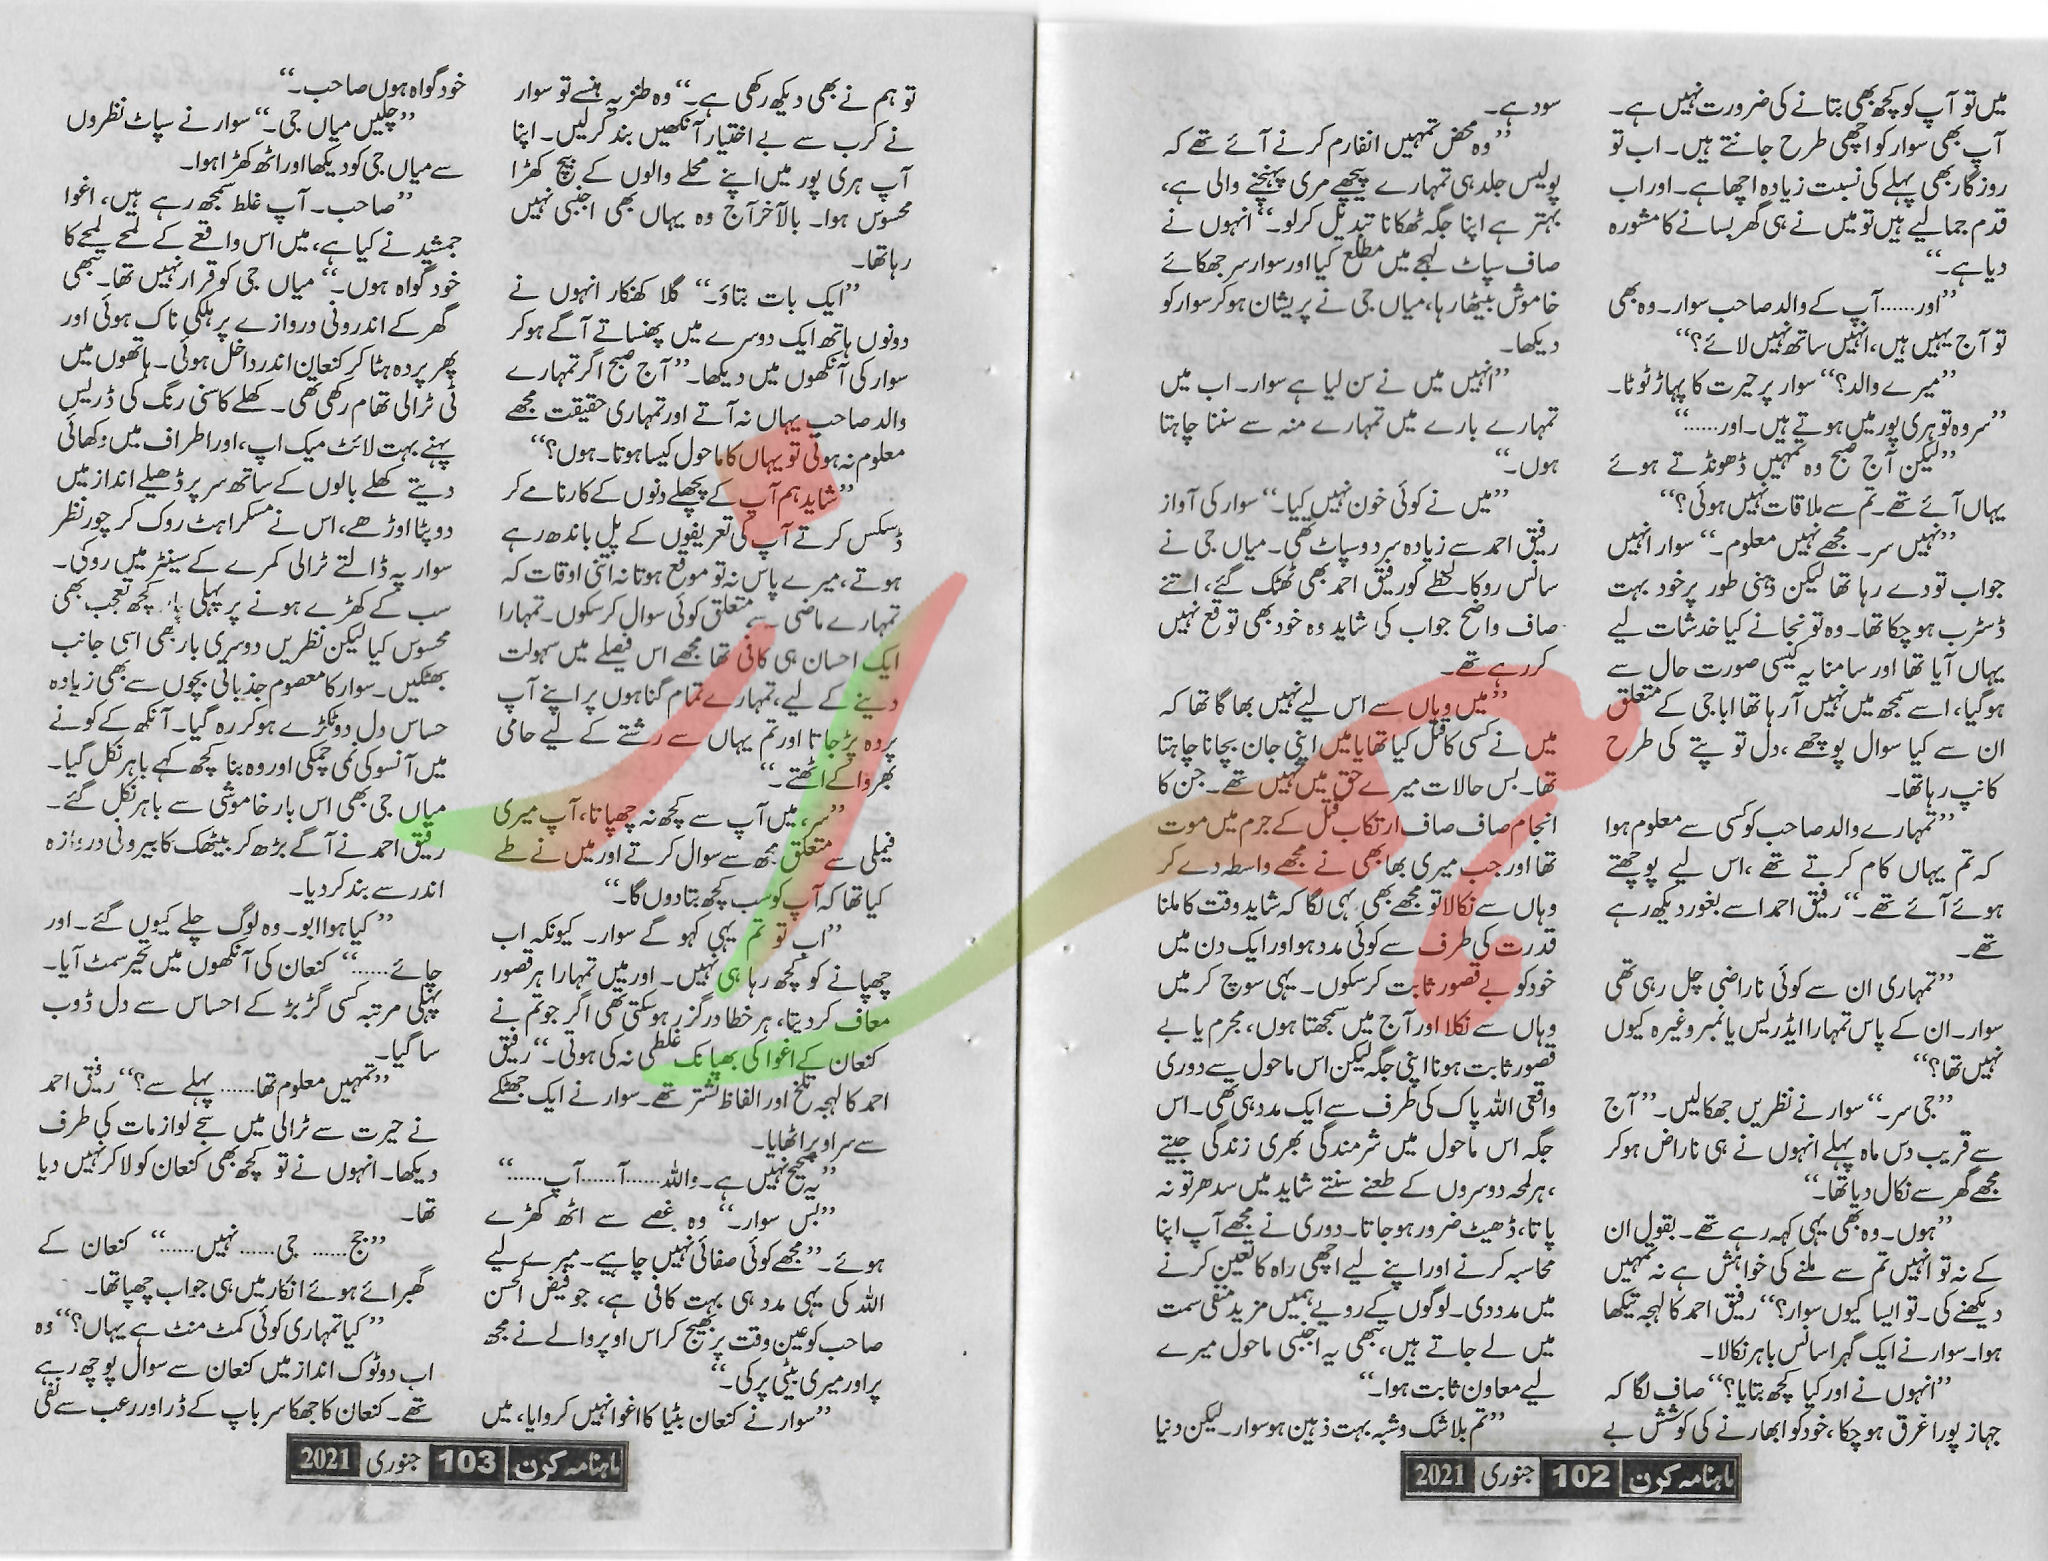 میں تو آپ کو کچھ بھی بتانے کی ضرورت نہیں ہے۔
آپ بھی سوار کو اچھی طرح جانتے ہیں۔ اب تو
روزگار بھی پہلے کی نسبت زیادہ اچھا ہے۔ اور اب
قدم جما لیے ہیں تو میں نے ہی گھر بسانے کا مشورہ
دیا ہے۔“
”اور...... آپ کے والد صاحب سوار۔ وہ بھی
تو آج یہیں ہیں، انہیں ساتھ نہیں لائے؟“
”میرے والد؟“ سوار پر حیرت کا پہاڑ ٹوٹا۔
”سر وہ تو ہری پور میں ہوتے ہیں۔ اور......“
”لیکن آج صبح وہ تمہیں ڈھونڈتے ہوئے
یہاں آئے تھے۔ تم سے ملاقات نہیں ہوئی؟“
”نہیں سر۔ مجھے نہیں معلوم۔“ سوار انہیں
جواب تو دے رہا تھا لیکن ذہنی طور پر خود بہت
ڈسٹرب ہو چکا تھا۔ وہ تو نجانے کیا خدشات لیے
یہاں آیا تھا اور سامنا یہ کیسی صورت حال سے
ہو گیا، اسے سمجھ میں نہیں آ رہا تھا ابا جی کے متعلق
ان سے کیا سوال پوچھے، دل تو پتے کی طرح
کانپ رہا تھا۔
”تمہارے والد صاحب کو کسی سے معلوم ہوا
کہ تم یہاں کام کرتے تھے، اس لیے پوچھتے
ہوئے آئے تھے۔“ رفیق احمد اسے بغور دیکھ رہے
تھے۔
”تمہاری ان سے کوئی ناراضی چل رہی تھی
سوار۔ ان کے پاس تمہارا ایڈریس یا نمبر وغیرہ کیوں
نہیں تھا؟“
”جی سر۔“ سوار نے نظریں جھکا لیں۔ ”آج
سے قریب دس ماہ پہلے انہوں نے ہی ناراض ہو کر
مجھے گھر سے نکال دیا تھا۔“
”ہوں۔ وہ بھی یہی کہہ رہے تھے۔ بقول ان
کے نہ تو انہیں تم سے ملنے کی خواہش ہے نہ تمہیں
دیکھنے کی۔ تو ایسا کیوں سوار؟“ رفیق احمد کا لہجہ تیکھا
ہوا۔ سوار نے ایک گہرا سانس باہر نکالا۔
”انہوں نے اور کیا کچھ بتایا؟“ صاف لگا کہ
جہاز پورا غرق ہو چکا، خود کو ابھارنے کی کوشش بے
سود ہے۔
”وہ محض تمہیں انفارم کرنے آئے تھے کہ
پولیس جلد ہی تمہارے پیچھے مری پہنچنے والی ہے،
بہتر ہے اپنا جگہ ٹھکانا تبدیل کر لو۔“ انہوں نے
صاف سپاٹ لہجے میں مطلع کیا اور سوار سر جھکائے
خاموش بیٹھا رہا، میاں جی نے پریشان ہو کر سوار کو
دیکھا۔
”انہیں میں نے سن لیا ہے سوار۔ اب میں
تمہارے بارے میں تمہارے منہ سے سننا چاہتا
ہوں۔“
”میں نے کوئی خون نہیں کیا۔“ سوار کی آواز
رفیق احمد سے زیادہ سرد و سپاٹ تھی۔ میاں جی نے
سانس روکا۔ لحظے کو رفیق احمد بھی ٹھٹک گئے، اتنے
صاف واضح جواب کی شاید وہ خود بھی توقع نہیں
کر رہے تھے۔
”میں وہاں سے اس لیے نہیں بھاگا تھا کہ
میں نے کسی کا قتل کیا تھا یا میں اپنی جان بچانا چاہتا
تھا۔ بس حالات میرے حق میں نہیں تھے۔ جن کا
انجام صاف صاف ارتکاب قتل کے جرم میں موت
تھا اور جب میری بھابھی نے مجھے واسطہ دے کر
وہاں سے نکالا تو مجھے بھی یہی لگا کہ شاید وقت کا ملنا
قدرت کی طرف سے کوئی مدد ہو اور ایک دن میں
خود کو بے قصور ثابت کر سکوں۔ یہی سوچ کر میں
وہاں سے نکلا اور آج میں سمجھتا ہوں، مجرم یا بے
قصور ثابت ہونا اپنی جگہ لیکن اس ماحول سے دوری
واقعی اللہ پاک کی طرف سے ایک مدد ہی تھی۔ اس
جگہ اس ماحول میں شرمندگی بھری زندگی جیتے
، ہر لمحہ دوسروں کے طعنے سنتے شاید میں سدھر تو نہ
پاتا، ڈھیٹ ضرور ہو جاتا۔ دوری نے مجھے آپ اپنا
محاسبہ کرنے اور اپنے لیے اچھی راہ کا تعین کرنے
میں مدد دی۔ لوگوں کے رویے ہمیں مزید منفی سمت
میں لے جاتے ہیں، تبھی یہ اجنبی ماحول میرے
لیے معاون ثابت ہوا۔“
”تم بلاشک و شبہ بہت ذہین ہو سوار۔ لیکن دنیا
ماہنامہ کرن 102 جنوری 2021
تو ہم نے بھی دیکھ رکھی ہے۔“ وہ طنزیہ ہنسے تو سوار
نے کرب سے بے اختیار آنکھیں بند کر لیں۔ اپنا
آپ ہری پور میں اپنے محلے والوں کے بیچ کھڑا
محسوس ہوا۔ بالآخر آج وہ یہاں بھی اجنبی نہیں
رہا تھا۔
”ایک بات بتاؤ۔“ گلا کھنکار انہوں نے
دونوں ہاتھ ایک دوسرے میں پھنساتے آگے ہو کر
سوار کی آنکھوں میں دیکھا۔ ”آج صبح اگر تمہارے
والد صاحب یہاں نہ آتے اور تمہاری حقیقت مجھے
معلوم نہ ہوتی تو یہاں کا ماحول کیسا ہوتا۔ ہوں؟“
”شاید ہم آپ کے پچھلے دنوں کے کارنامے کر
ڈسکس کرتے آپ کی تعریفوں کے پل باندھ رہے
ہوتے، میرے پاس نہ تو موقع ہوتا نہ اتنی اوقات کہ
تمہارے ماضی سے متعلق کوئی سوال کر سکوں۔ تمہارا
ایک احسان ہی کافی تھا مجھے اس فیصلے میں سہولت
دینے کے لیے، تمہارے تمام گناہوں پر اپنے آپ
پردہ پڑ جاتا اور تم یہاں سے رشتے کے لیے حامی
بھروا کے اٹھتے۔“
”سر، میں آپ سے کچھ نہ چھپاتا، آپ میری
فیملی سے متعلق مجھ سے سوال کرتے اور میں نے طے
کیا تھا کہ آپ کو سب کچھ بتا دوں گا۔“
”اب تو تم یہی کہو گے سوار۔ کیونکہ اب
چھپانے کو کچھ رہا ہی نہیں۔ اور میں تمہارا ہر قصور
معاف کر دیتا، ہر خطا درگزر ہو سکتی تھی اگر جو تم نے
کنعان کے اغوا کی بھیانک غلطی نہ کی ہوتی۔“ رفیق
احمد کا لہجہ تلخ اور الفاظ نشتر تھے۔ سوار نے ایک جھٹکے
سے سر اوپر اٹھایا۔
”یہ صحیح نہیں ہے۔ واللہ...... آ...... آپ......“
”بس سوار۔“ وہ غصے سے اٹھ کھڑے
ہوئے۔ ”مجھے کوئی صفائی نہیں چاہیے۔ میرے لیے
اللہ کی یہی مدد ہی بہت کافی ہے، جو فیض الحسن
صاحب کو عین وقت پر بھیج کر اس اوپر والے نے مجھ
پر اور میری بیٹی پر کی۔“
”سوار نے کنعان بٹیا کا اغوا نہیں کروایا، میں
خود گواہ ہوں صاحب۔“
”چلیں میاں جی۔“ سوار نے سپاٹ نظروں
سے میاں جی کو دیکھا اور اٹھ کھڑا ہوا۔
”صاحب۔ آپ غلط سمجھ رہے ہیں، اغوا
جمشید نے کیا ہے، میں اس واقعے کے لمحے لمحے کا
خود گواہ ہوں۔“ میاں جی کو قرار نہیں تھا۔ تبھی
گھر کے اندرونی دروازے پر ہلکی ناک ہوئی اور
پھر پردہ ہٹا کر کنعان اندر داخل ہوئی۔ ہاتھوں میں
ٹی ٹرالی تھام رکھی تھی۔ کھلے کاسنی رنگ کی ڈریس
پہنے بہت لائٹ میک اپ، اور اطراف میں دکھائی
دیتے کھلے بالوں کے ساتھ سر پر ڈھیلے انداز میں
دوپٹا اوڑھے، اس نے مسکراہٹ روک کر چور نظر
سوار پہ ڈالتے ٹرالی کمرے کے سینٹر میں روکی۔
سب کے کھڑے ہونے پر پہلی بار کچھ تعجب بھی
محسوس کیا لیکن نظریں دوسری بار بھی اسی جانب
بھٹکیں۔ سوار کا معصوم جذباتی بچوں سے بھی زیادہ
حساس دل دو ٹکڑے ہو کر رہ گیا۔ آنکھ کے کونے
میں آنسو کی نمی چمکی اور وہ بنا کچھ کہے باہر نکل گیا۔
میاں جی بھی اس بار خاموشی سے باہر نکل گئے۔
رفیق احمد نے آگے بڑھ کر بیٹھک کا بیرونی دروازہ
اندر سے بند کر دیا۔
”کیا ہوا ابو۔ وہ لوگ چلے کیوں گئے۔ اور
چائے......“ کنعان کی آنکھوں میں تحیر سمٹ آیا۔
پہلی مرتبہ کسی گڑبڑ کے احساس سے دل ڈوب
سا گیا۔
”تمہیں معلوم تھا...... پہلے سے؟“ رفیق احمد
نے حیرت سے ٹرالی میں سجے لوازمات کی طرف
دیکھا۔ انہوں نے تو کچھ بھی کنعان کو لا کر نہیں دیا
تھا۔
”جج...... جی...... نہیں......“ کنعان کے
گھبرائے ہوئے انکار میں ہی جواب چھپا تھا۔
”کیا تمہاری کوئی کمٹ منٹ ہے یہاں؟“ وہ
اب دو ٹوک انداز میں کنعان سے سوال پوچھ رہے
تھے۔ کنعان کا جھکا سر باپ کے ڈر اور رعب سے نفی
ماہنامہ کرن 103 جنوری 2021